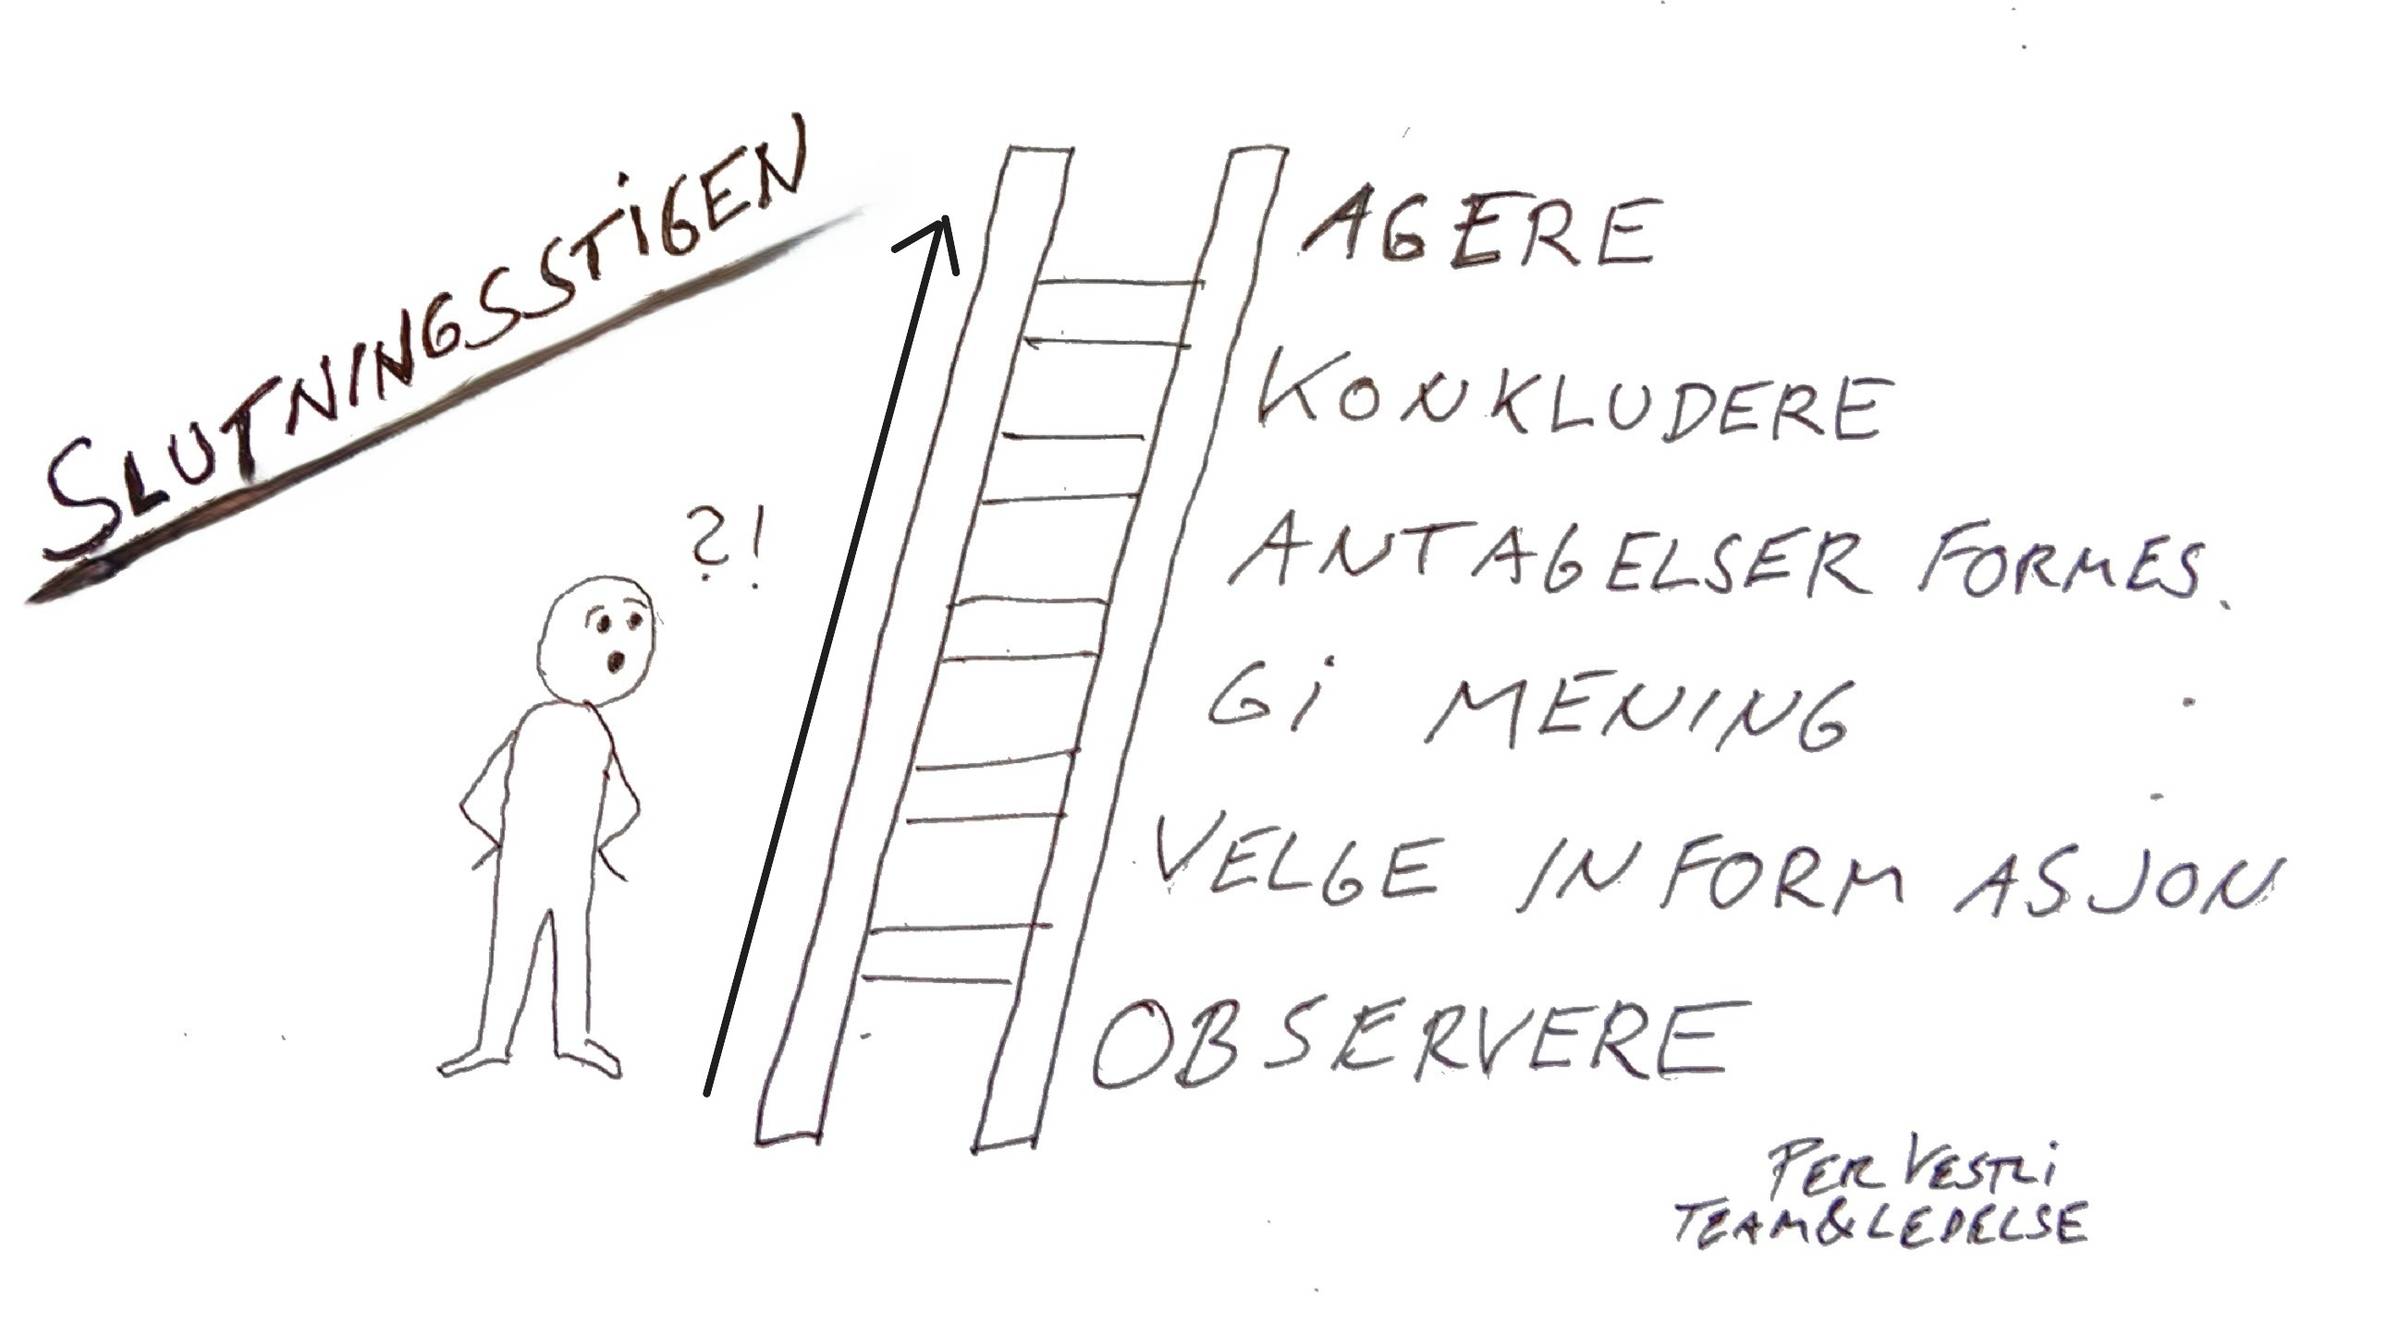 SLUTNINGSSTIGEN
?!
AGERE
KONKLUDERE
ANTAGELSER FORMES.
Gi MENING
VELGE INFORMASJON
OBSERVERE
PER VESTLi
TEAM&LEDELSE